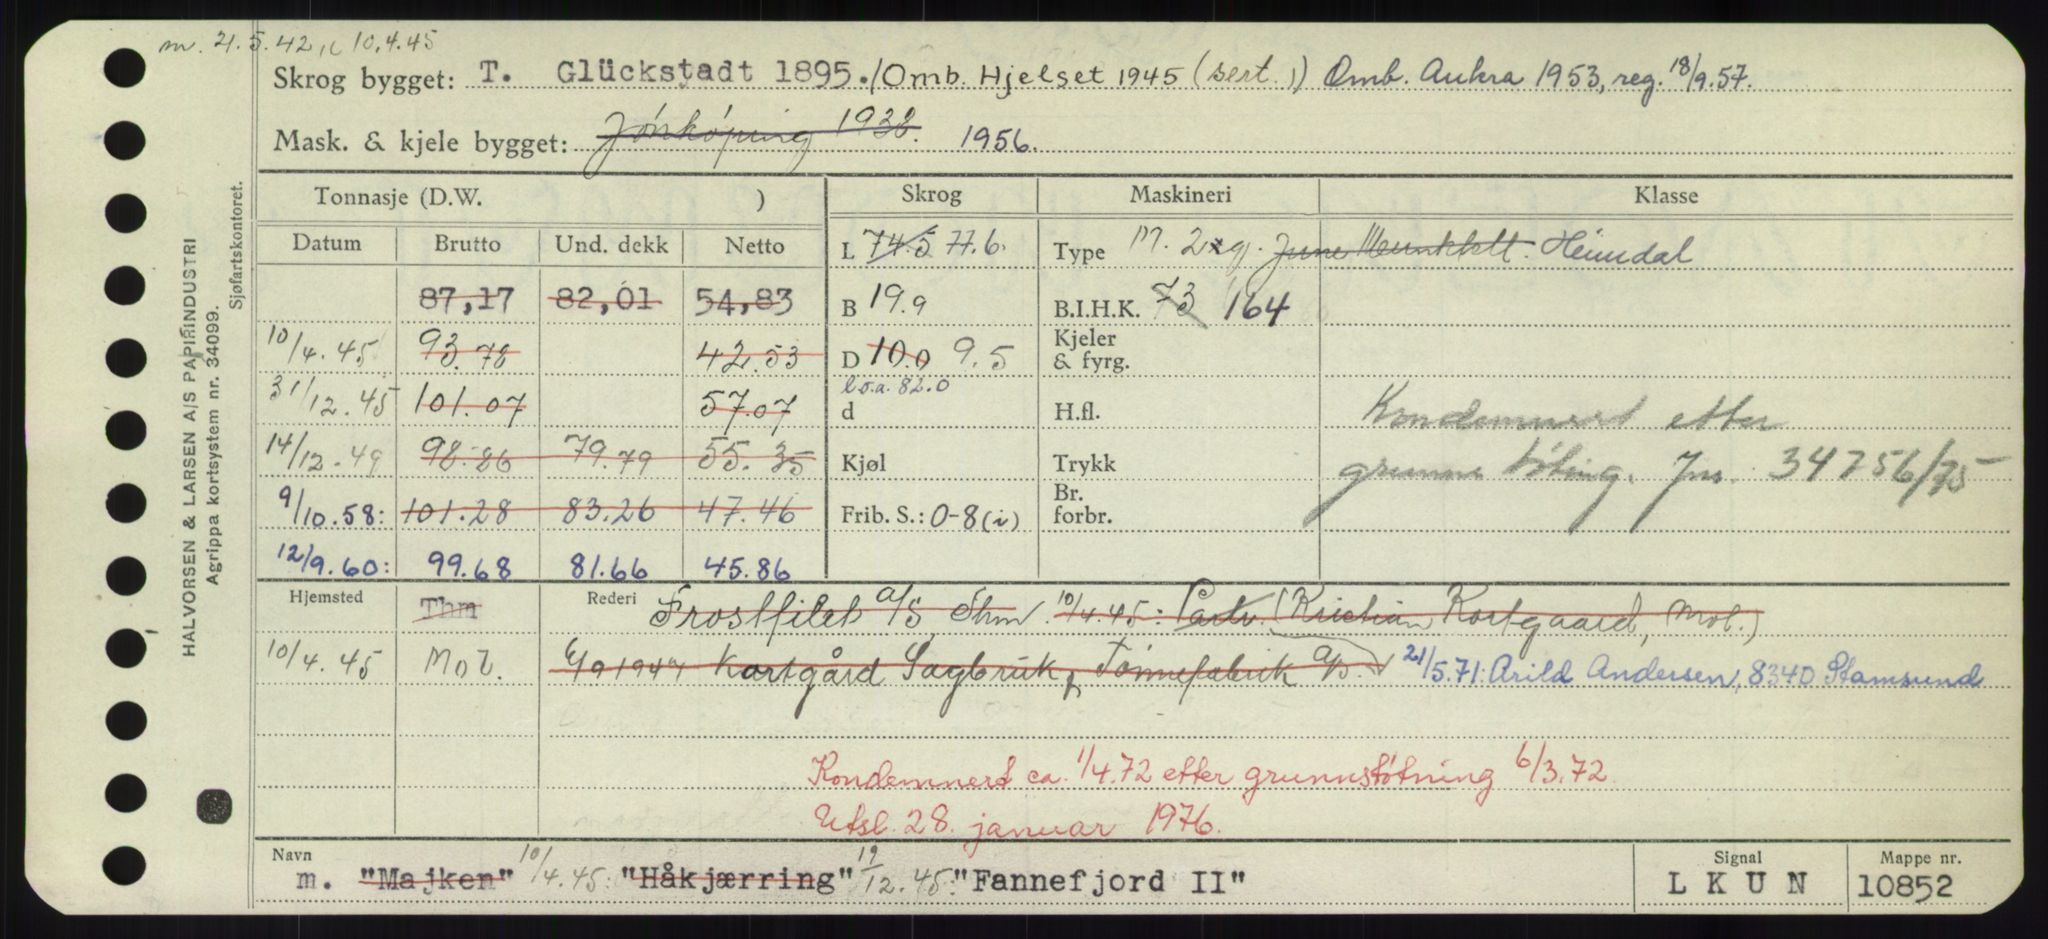 m. 21.5.42, 10.4.45
Skrog bygget: T. Glückstadt 1895./Omb. Hjelset 1945 (sert.) Omb. Aukra 1953, reg. 18/9.57.
Mask. & kjele bygget: Jönköping 1938. 1956.
Tonnasje (D.W. ) Skrog Maskineri Klasse
Datum Brutto Und. dekk Netto L 74.5 77.6. Type M. 2 Heimdal
87,17 82,01 54,83 B 19.9 B.I.H.K. 73 164
10/4.45 93.78 42.53 D 10.0 9.5 Kjeler & fyrg.
l.o.a. 82.0
31/12.45 101.07 57.07 d H.fl. Kondemnert etter
14/12.49 98.86 79.79 55.35 Kjøl Trykk grunnstøting. Jnr. 34256/75
9/10.58: 101.28 83.26 47.46 Frib. S.: 0-8 (i) Br. forbr.
12/9.60: 99.68 81.66 45.86
Hjemsted Thm Rederi Frostfilet A/S Thm. 10/4.45: Partr. (Kristian Kortgaard, Mol.)
10/4.45 Mol. 1947 Kortgård Sagbruk & Tønnefabrik A/S. 21/5.71: Arild Andersen, 8340 Stamsund
Kondemnert ca. 1/4.72 etter grunnstøtning 6/3.72.
Utsl. 28. januar 1976.
Navn Signal Mappe nr.
m. "Majken" 10/4.45: "Håkjærring" 19/12.45: "Fannefjord II" LKUN 10852
HALVORSEN & LARSEN A/S PAPIRINDUSTRI
Agrippa kortsystem nr. 34099.
Sjøfartskontoret.